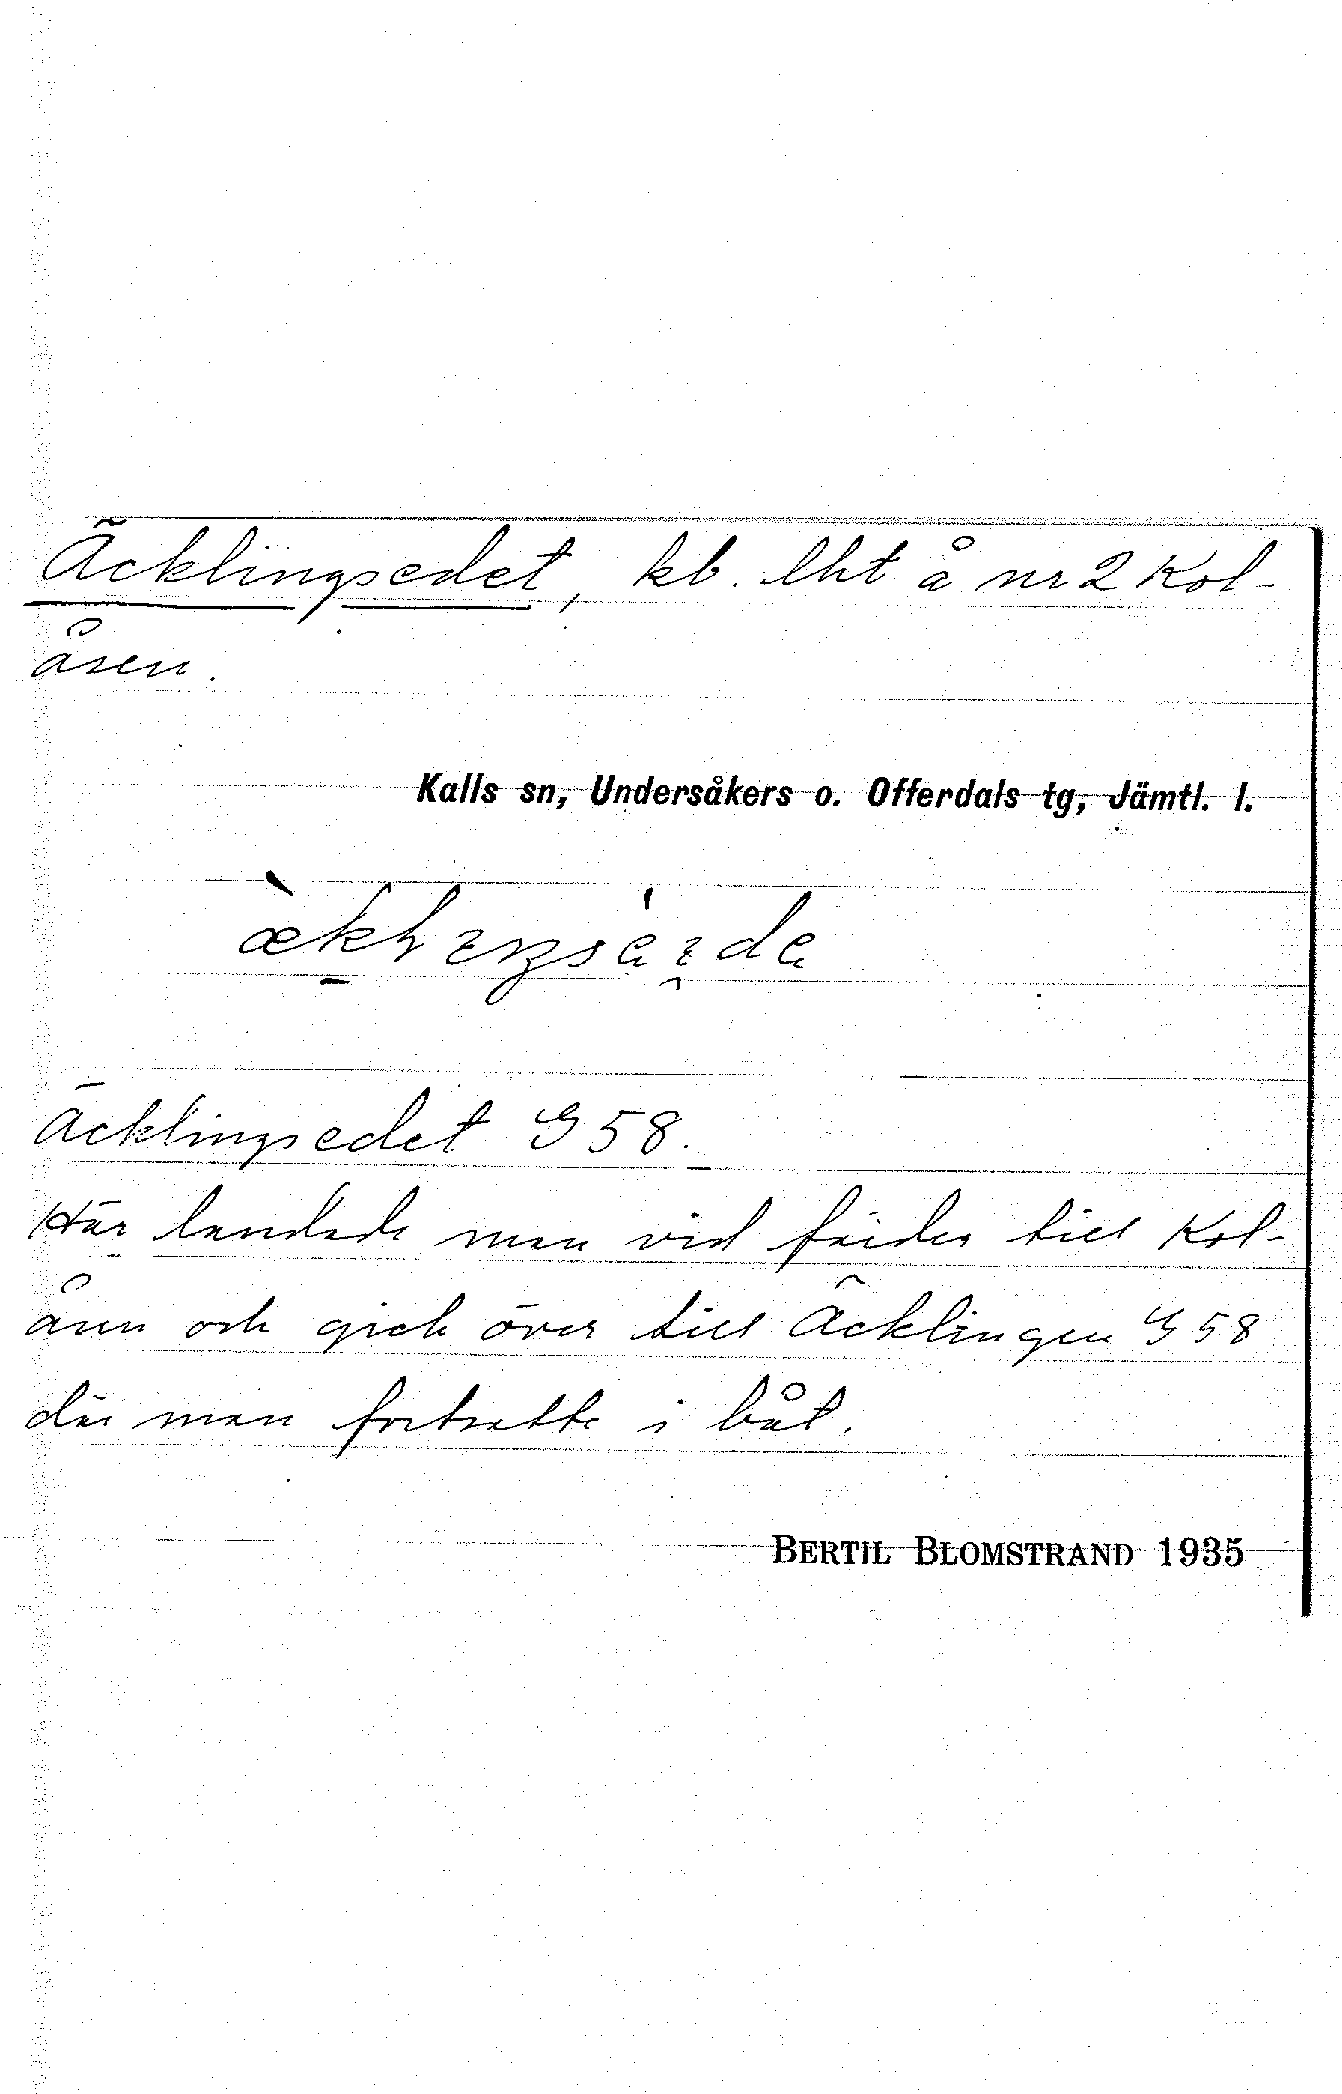 Äcklingsedet, kb. lht å nr 2 Kol-
åsen.
Kalls sn, Undersåkers o. Offerdals tg, Jämtl. l.
Äcklingsedet G 58.
Här landade man vid färder till Kol-
åsen och gick över till Äcklingen G 58
där man fortsatte i båt.
BERTIL BLOMSTRAND 1935